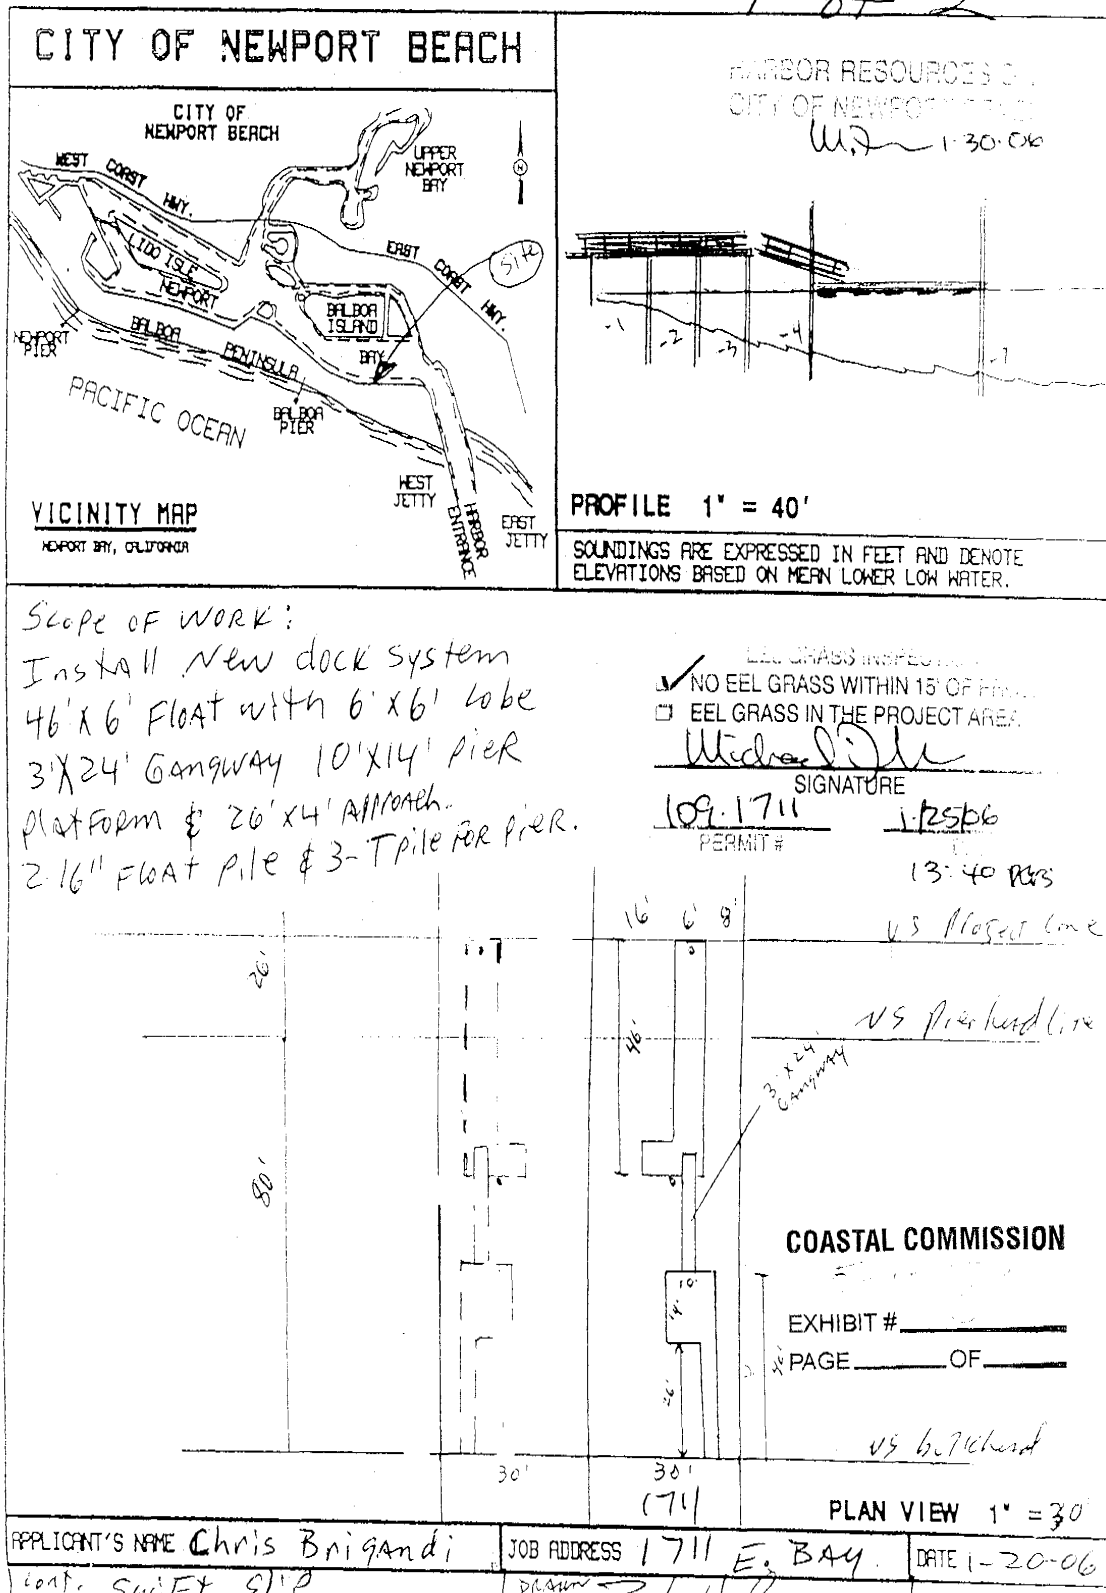 1 OF 2
CITY OF NEWPORT BEACH
CITY OF
NEWPORT BEACH
UPPER
NEWPORT
BAY
N
WEST COAST HWY.
EAST COAST HWY.
Site
LIDO ISLE
NEWPORT
BALBOA
ISLAND
BAY
NEWPORT
PIER
BALBOA PENINSULA
BALBOA
PIER
PACIFIC OCEAN
WEST
JETTY
HARBOR
ENTRANCE
EAST
JETTY
VICINITY MAP
NEWPORT BAY, CALIFORNIA
HARBOR RESOURCES
CITY OF NEWPORT BEACH
1-30-06
-1
-2
-3
-4
-7
PROFILE 1" = 40'
SOUNDINGS ARE EXPRESSED IN FEET AND DENOTE
ELEVATIONS BASED ON MEAN LOWER LOW WATER.
Scope of Work:
Install New dock system
46' X 6' Float with 6' X 6' Lobe
3' X 24' Gangway 10' X 14' Pier
Platform & 26' x 4' Approach.
2-16" Float Pile & 3-T pile For Pier.
EEL GRASS INSPECTION
NO EEL GRASS WITHIN 15' OF
EEL GRASS IN THE PROJECT AREA
SIGNATURE
109-1711 1/25/06
PERMIT #
13:40
16' 6' 8'
US Project Line
26'
US Pierhead Line
46'
3' X 24'
Gangway
80'
COASTAL COMMISSION
10'
14'
EXHIBIT #
PAGE OF
26'
US bulkhead
30' 30'
1711
PLAN VIEW 1" = 30'
APPLICANT'S NAME Chris Brigandi JOB ADDRESS 1711 E. BAY DATE 1-20-06
Cont. SWIFT SLIP DRAWN